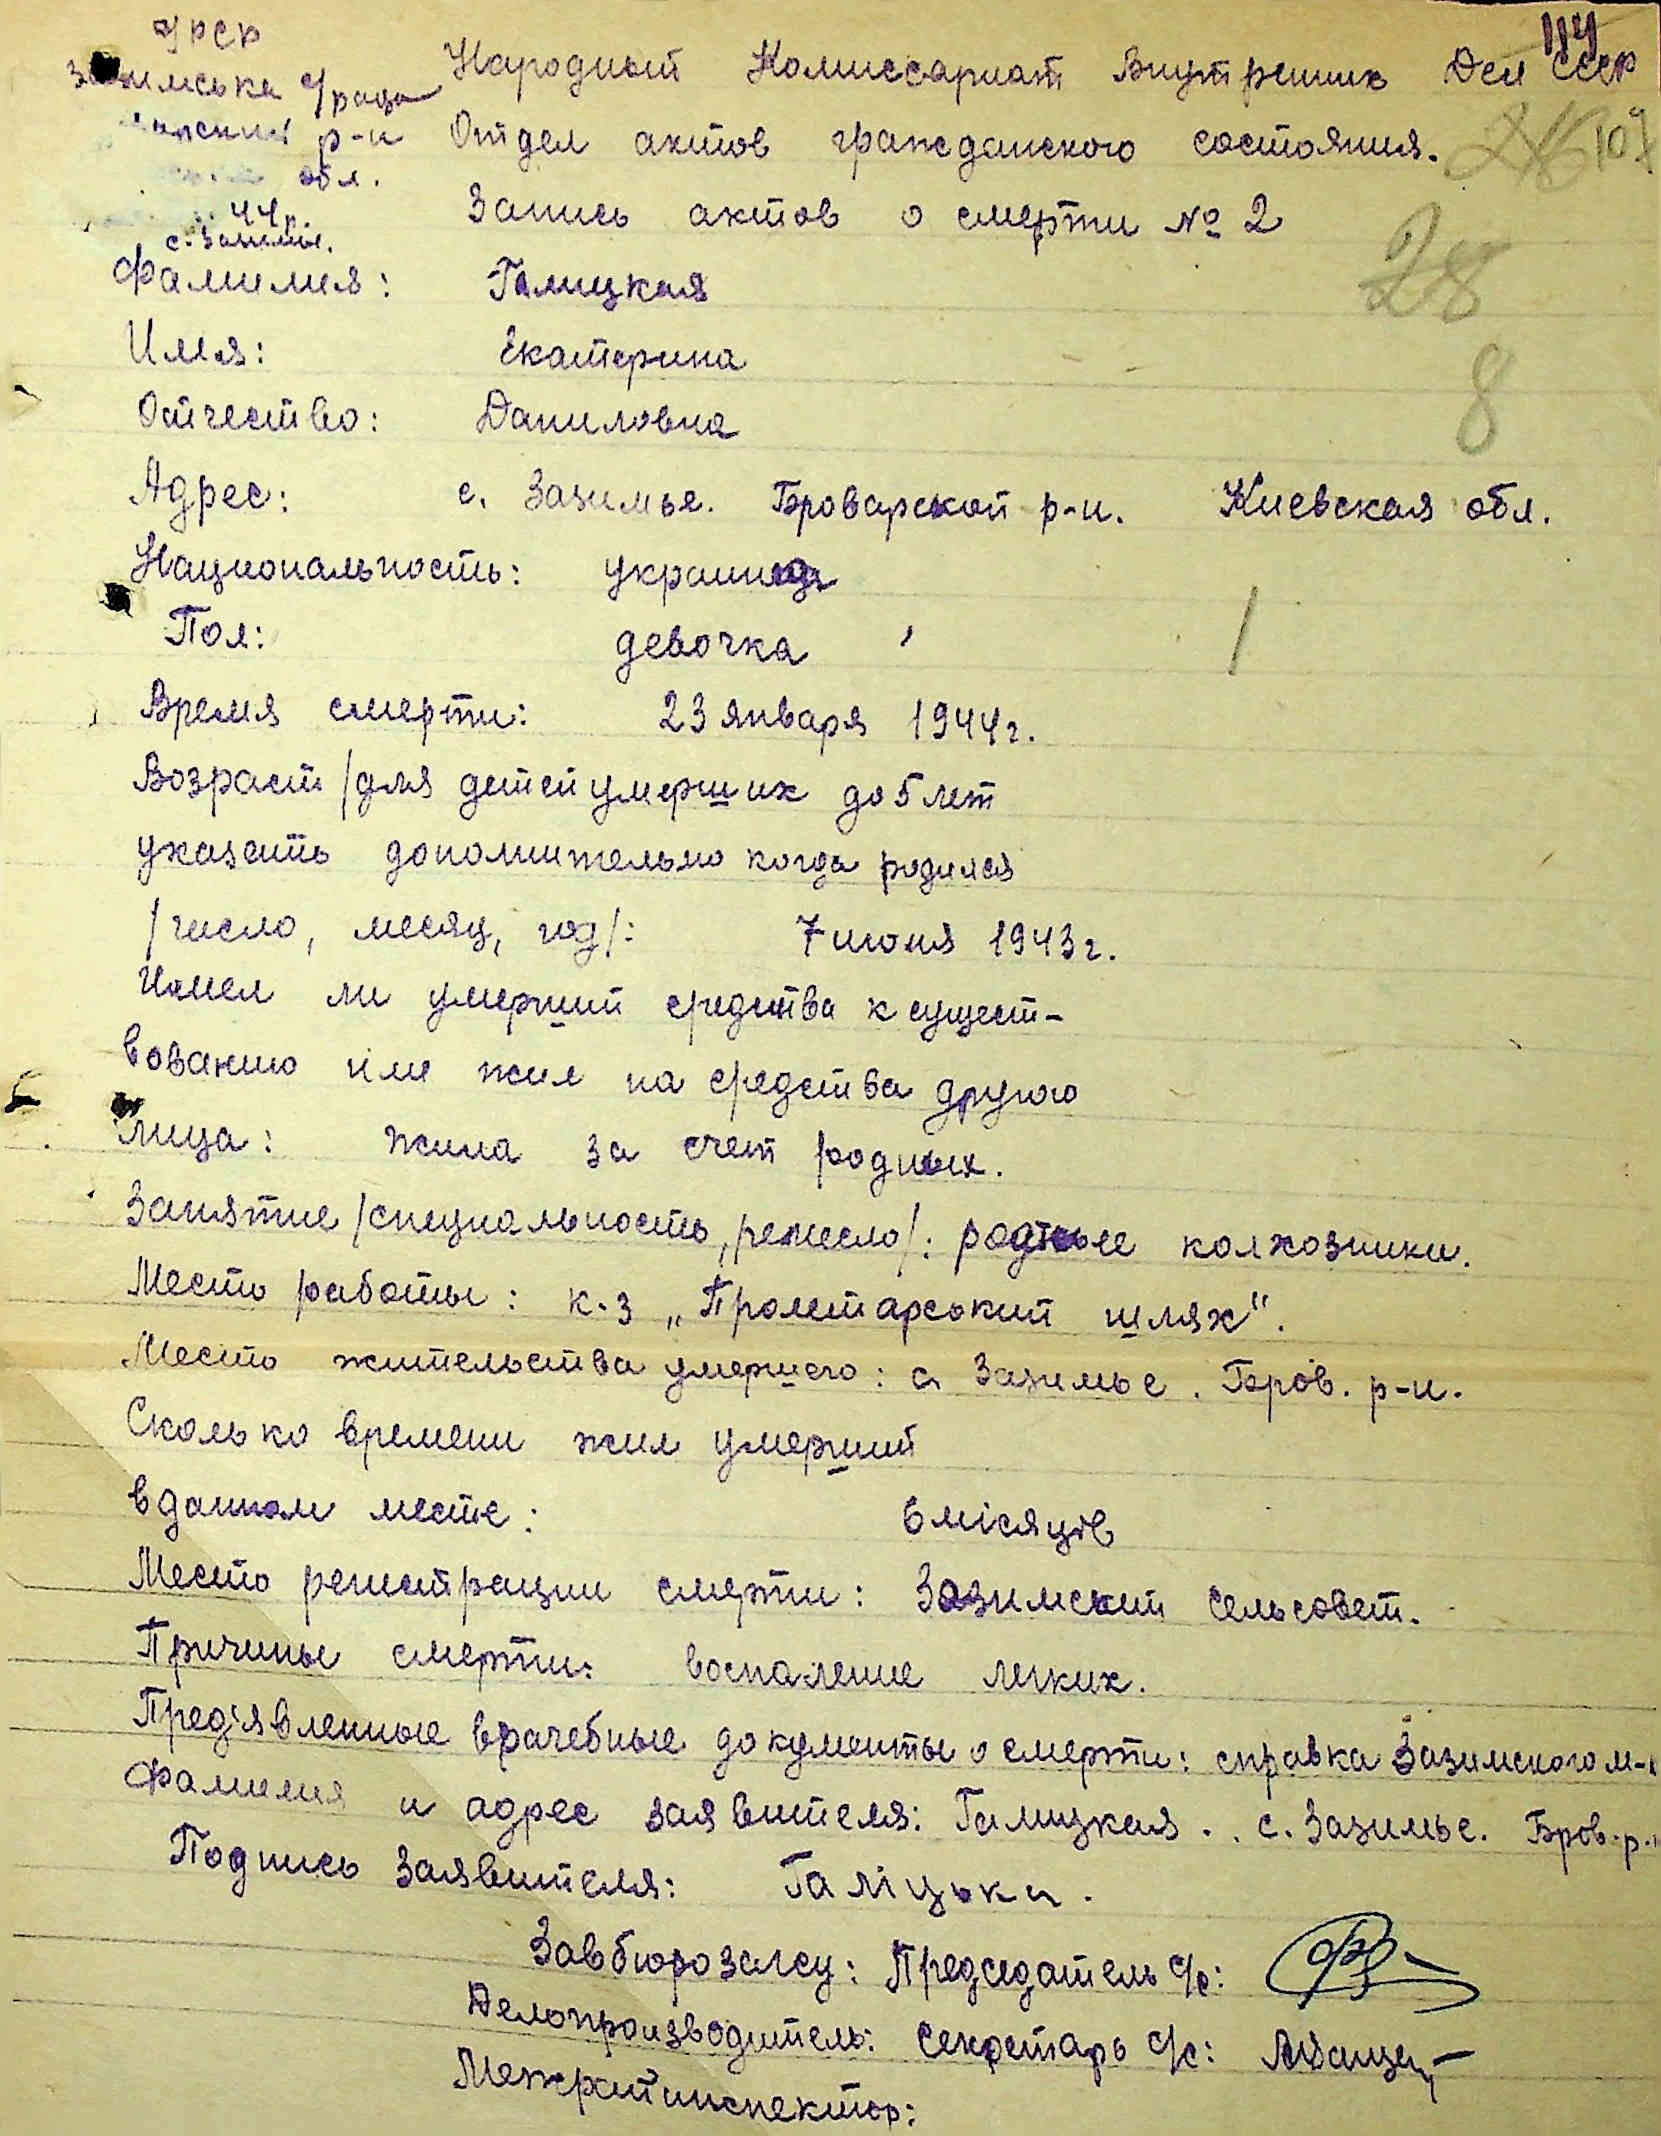 УРСР
Народный Комиссариат Внутренних Дел СССР
114
с/рада
р-н Отдел актов гражданского состояния.
107
обл.
44р.
Запись актов о смерти № 2
с. Зазимье.
28
Фамилия: Галицкая
Имя: Екатерина
8
Отчество: Даниловна
Адрес: с. Зазимье. Броварской р-н. Киевская обл.
Национальность: украинця
Пол: девочка
Время смерти: 23 января 1944 г.
Возраст /для детей умерших до 5 лет
указать дополнительно когда родился
/число, месяц, год/: 7 июня 1943 г.
Имел ли умерший средства к сущест-
вованию или жил на средства другого
лица: жила за счет родных.
Занятие /специальность, ремесло/: родные колхозники.
Место работы: к-з „Пролетарський шлях".
Место жительства умершего: с. Зазимье. Бров. р-н.
Сколько времени жил умерший
в данном месте: 6 місяців
Место регистрации смерти: Зазимский сельсовет.
Причины смерти: воспаление легких.
Пред'явленные врачебные документы о смерти: справка Зазимского м-
Фамилия и адрес заявителя: Галицкая. с. Зазимье. Бров. р-
Подпись заявителя: Галіцька.
Завбюрозагсу: Председатель с/с:
Делопроизводитель: Секретарь с/с:
Межрайинспектор: